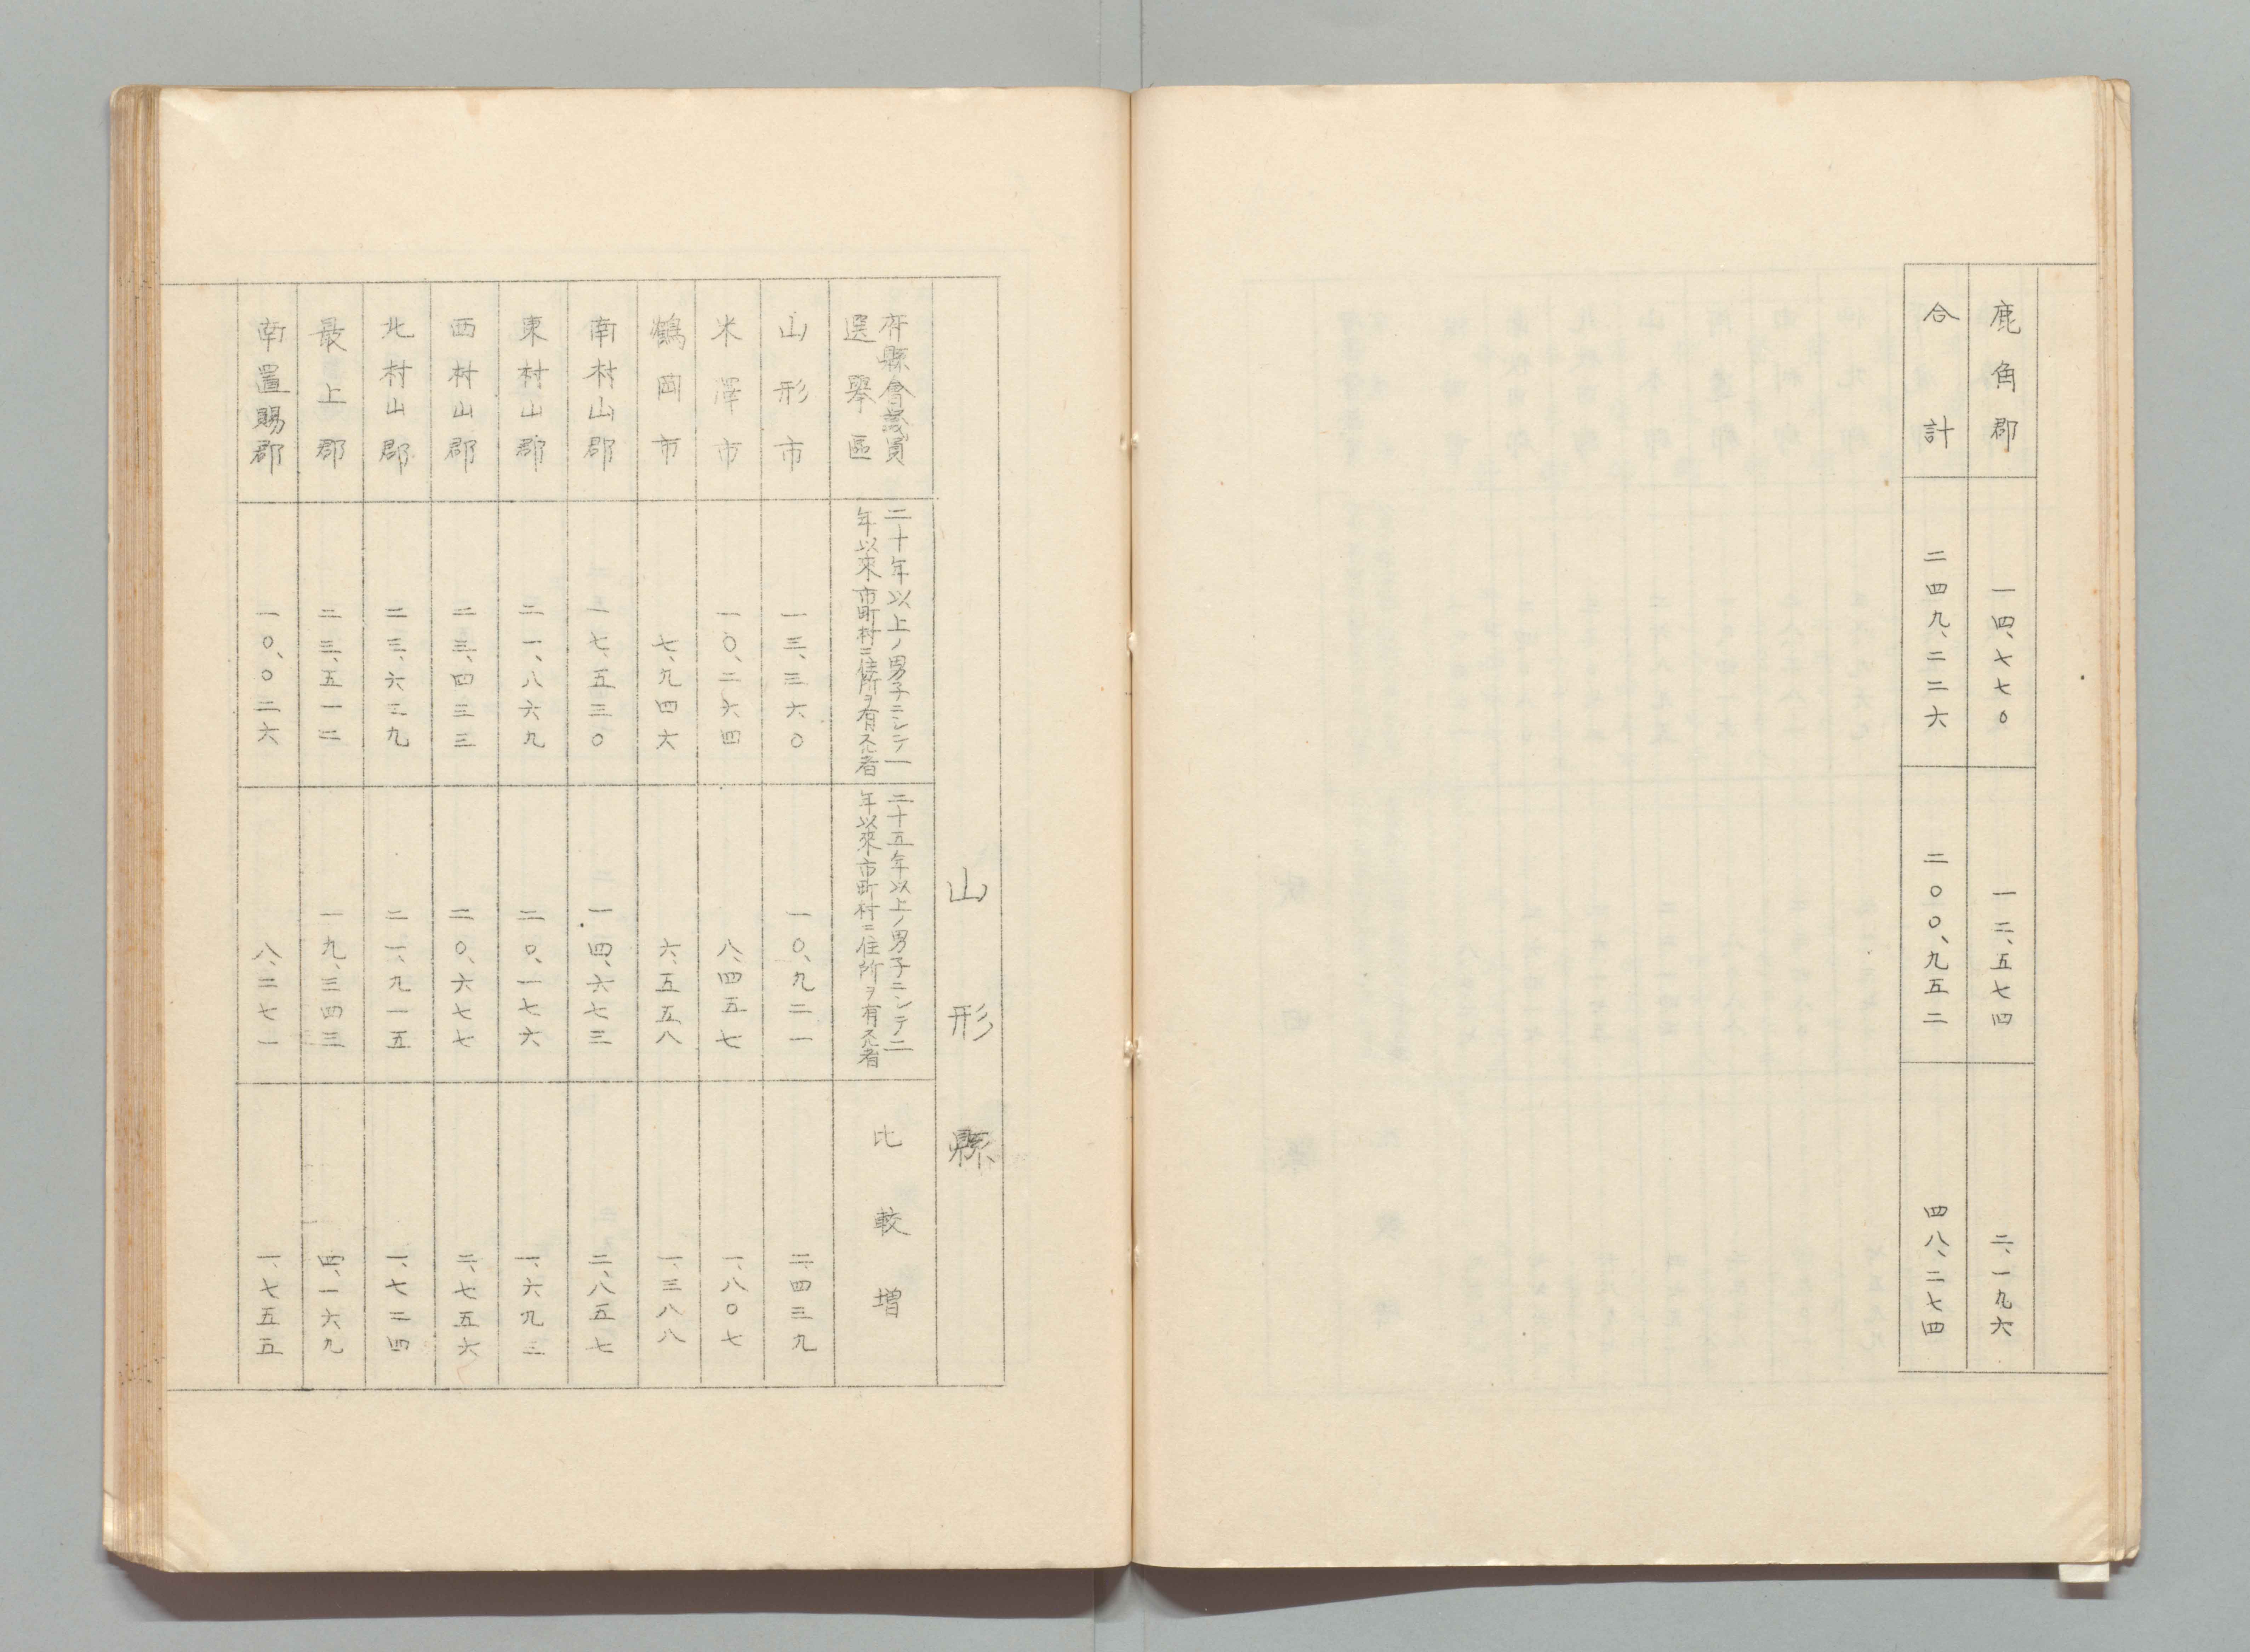 鹿角郡 一四、七七〇 一二、五七四 二、一九六
合計 二四九、二二六 二〇〇、九五二 四八、二七四
山形縣
府縣會議員
選擧區
二十年以上ノ男子ニシテ一
年以來市町村ニ住所ヲ有スル者
二十五年以上ノ男子ニシテ二
年以來市町村ニ住所ヲ有スル者
比較增
山形市 一三、三六〇 一〇、九二一 二、四三九
米澤市 一〇、二六四 八、四五七 一、八〇七
鶴岡市 七、九四六 六、五五八 一、三八八
南村山郡 一七、五三〇 一四、六七三 二、八五七
東村山郡 二一、八六九 二〇、一七六 一、六九三
西村山郡 二三、四三三 二〇、六七七 二、七五六
北村山郡 二三、六三九 二一、九一五 一、七二四
最上郡 二三、五一二 一九、三四三 四、一六九
南置賜郡 一〇、〇二六 八、二七一 一、七五五